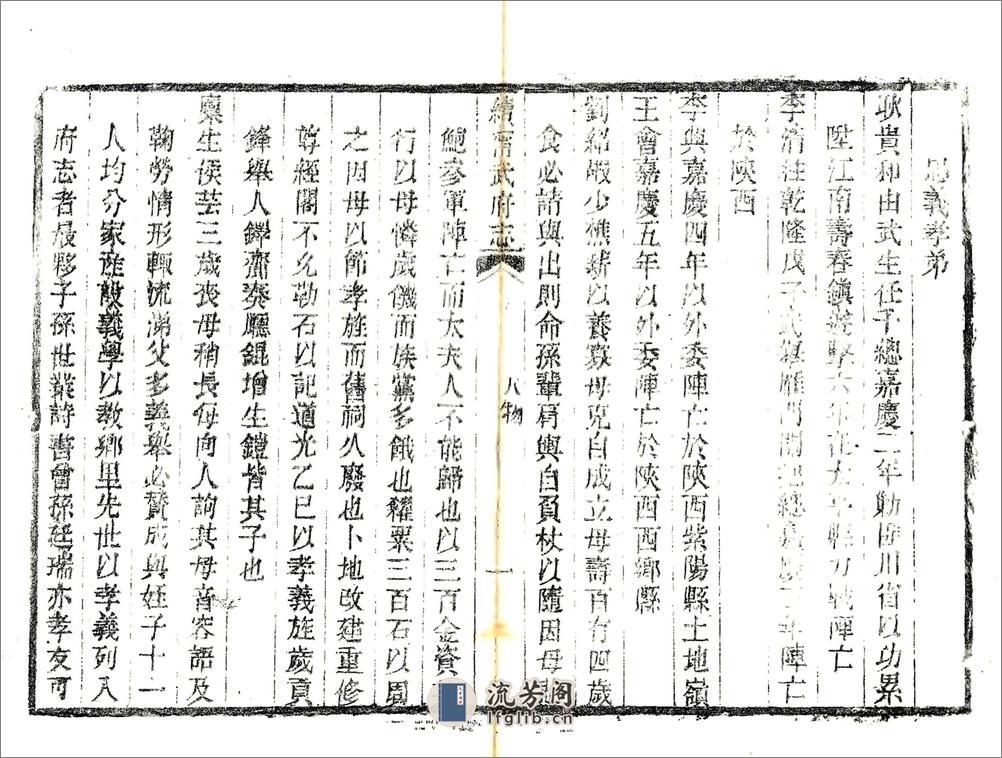 忠義孝弟
耿貴和由武生任千總嘉慶二年勦匪川省以功累
陞江南壽春鎮遊擊六年在太平力戰陣亡
李清桂乾隆戊子武舉雁門關把總嘉慶二年陣亡
於陝西
李興嘉慶四年以外委陣亡於陝西紫陽縣土地嶺
王會嘉慶五年以外委陣亡於陝西西鄉縣
劉紹嘏少樵薪以養寡母兄自成立母壽百有四歲
食必請與出則命孫輩肩輿自負杖以隨因母
續甯武府志
人物
一
鮑參軍陣亡而太夫人不能歸也以三百金資
行以母憐歲饑而族黨多餓也糴粟三百石以周
之因母以節孝旌而舊祠久廢也卜地改建重修
尊經閣不允勒石以記道光乙巳以孝義旌歲貢
鋒舉人鐸齋奏廳錕增生鎧皆其子也
廩生侯芸三歲喪母稍長每向人詢其母音容語及
鞠勞情形輒流涕父多義舉必贊成與姪子十一
人均分家產設義學以教鄉里先世以孝義列入
府志者最夥子孫世業詩書曾孫廷瑞亦孝友可
流芳阁
lfglib.cn